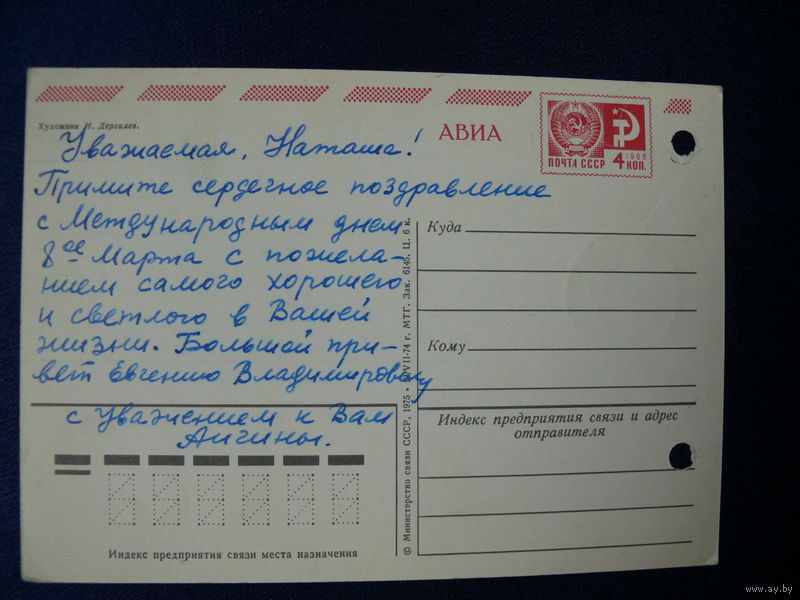 Художник И. Дергилев.
АВИА
ПОЧТА СССР
1966
4 КОП.
Уважаемая, Наташа!
Примите сердечное поздравление
с Международным днем
8ое Марта с пожела-
нием самого хорошего
и светлого в Вашей
жизни. Большой при-
вет Евгению Владимировичу
с уважением к Вам
Аигины.
Куда
Кому
Индекс предприятия связи и адрес
отправителя
Индекс предприятия связи места назначения
© Министерство связи СССР, 1975 • VII-74 г. МТГ. Зак. 6148. Ц. 6 к.
www.ay.by